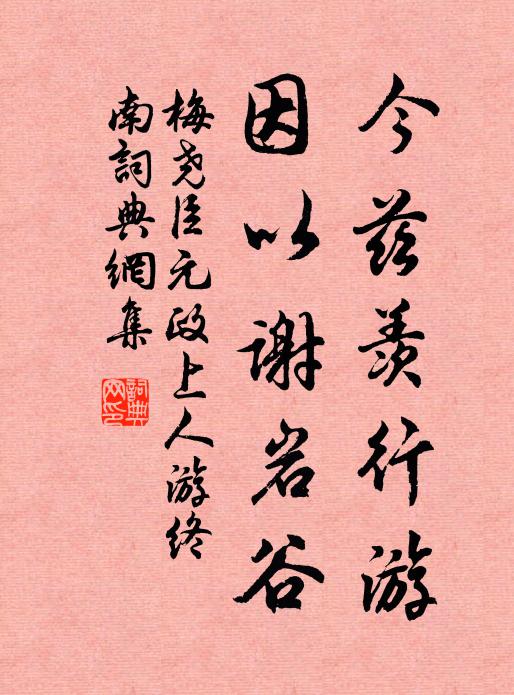 今兹羡行游
因以谢岩谷
梅尧臣元政上人游终
南詞典網集
詞典
网印